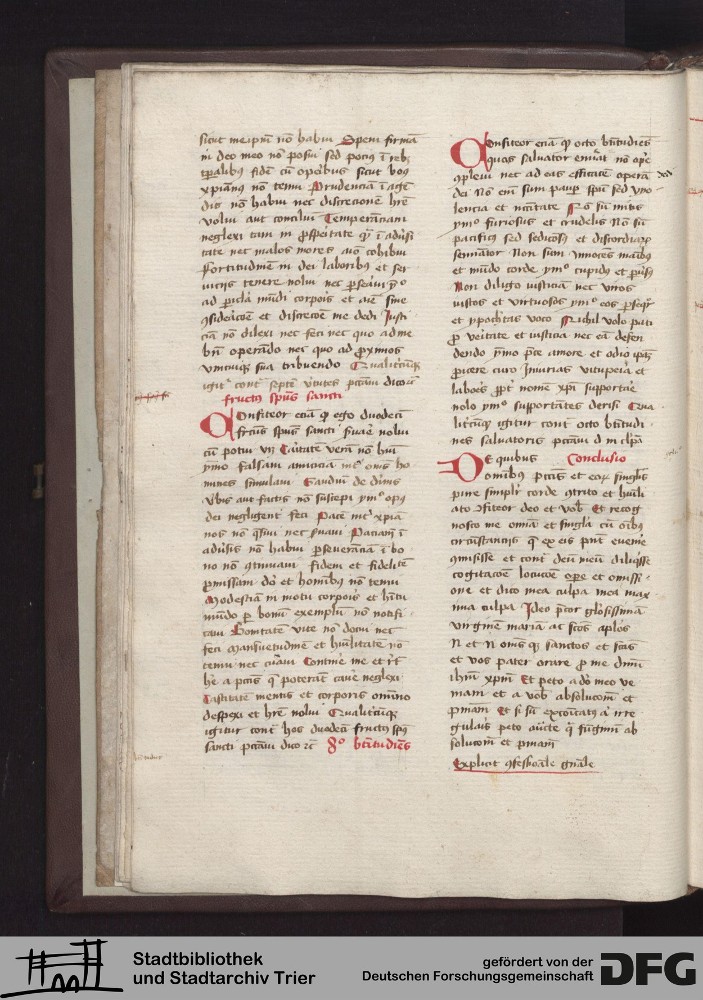 sicut meipm nō habui Spem firmā
in deo meo nō posui sed pocius ī reb9
tꝑalibus fidē cū opibus sicut bonꝰ
xpianꝰ nō tenui Prudenciā ī agē
dis nō habui nec discrecionē hr̄e
volui aut consilui Temperanciam
neglexi tam in ꝓsperitate qꝫ ī adūsi
tate nec malos mores aīo cohibui
Fortitudinē in dei laboribꝰ et ser
uiciis tenere nolui nec
ad ꝑicla mūdi corpois et aīe sine
ꝯsideracōe et discrecōe me dedi Justi
ciā nō dilexi nec feci nec quo ad me
bn̄ operando nec quo ad ꝓximos
vnicuiqꝫ sua tribuendo Qualitcūqꝫ
igitr cont septē v̄tutes pctāui dico
fructꝰ spūs sancti
Confiteor eciā ꝙ ego duodecī
fr̄cūs spūs sancti suaē nolui
cū potui vn̄ Caritatē verā nō hui
ymo falsam amicicia int oīns ho
mines simulaui Gaudiū de diuis
v̄bis aut factis nō suscepi ymo opꝰ
dei negligent feci Pacē int xpiā
nos nō q̄siui nec suaui Pacianciā ī
adūsis nō habui ꝑseuerāciā ī bo
no nō ꝯtinuaui fidem et fidelitē
ꝓmissam do et hominibꝰ nō tenui
Modestiā in motu corpois et hītu
mūdo ꝑ bonū exemplū nō notifi
caui Bonitatē vite nō docui nec
feci Mansuetudinē et huīlitatē nō
tenui nec cūaui Contine me et
a pctis q̄ poteram cauē neglexi
Castitatē mentis et corporis omnino
despexi et hr̄e nolui Qualitcūqꝫ
igitur cont hos duodecī fructꝰ spūs
sancti pctāui dico 8o btītudīes
Confiteor eciā ꝙ octo btītudies
quas saluator enūat nō ope
ꝯpleui nec ad eas efficacē operā
dei Nō em̄ sum paup spū sed vno
lencia et Nō sū mitis
ymo furiosus et crudelis Nō sū
pacificꝰ sed sediciosꝰ et discordiaꝝ
seminator Non sum ynnocens manibꝰ
et mūdo corde ymo cupidꝰ et
Non diligo iusticiā nec viros
iustos et virtuosos ymo eos ꝑseqr
et ypoc̄tas voco Nichil volo pati
ꝓ veritate et iusticia nec eā defen
dendo ymo amore et odio
ꝑicere curo Iniurias vitupeia et
laboēs ꝓpt nomē xpī supportaē
nolo ymo supportātes derisi Qua
litcūqꝫ igitur cont octo btītudi
nes saluatoris pctāui d m clpā
De quibus Conclusio
omnibꝰ pctīs et eoꝝ singlīs
pure simplr corde ꝯtrito et huīli
ato ꝯfiteor deo et vob Et recog
nosco me omīa et singla cū oībꝰ
circūstanciis q̄ ex eis pn̄t eueniē
ꝯmisisse et cont deū meū diliq̄sse
cogitacōe locucōe ope et omissi
one et dico mea culpa mea max
ima culpa Ideo pcor glosissimā
virginē mariā ac scōs aplos
N et N oms qꝫ sanctos et scās
et vos pater orare ꝓ me dnm
ihm xpm Et peto a do meo ve
niam et a vob absolucoem et
pniam Et si sū excōicatꝰ a irre
gulais peto auctē q̄ fūgimī ab
solucoem et pniam
Explicit ꝯfessionale gnale
Stadtbibliothek
und Stadtarchiv Trier
gefördert von der
Deutschen Forschungsgemeinschaft
DFG